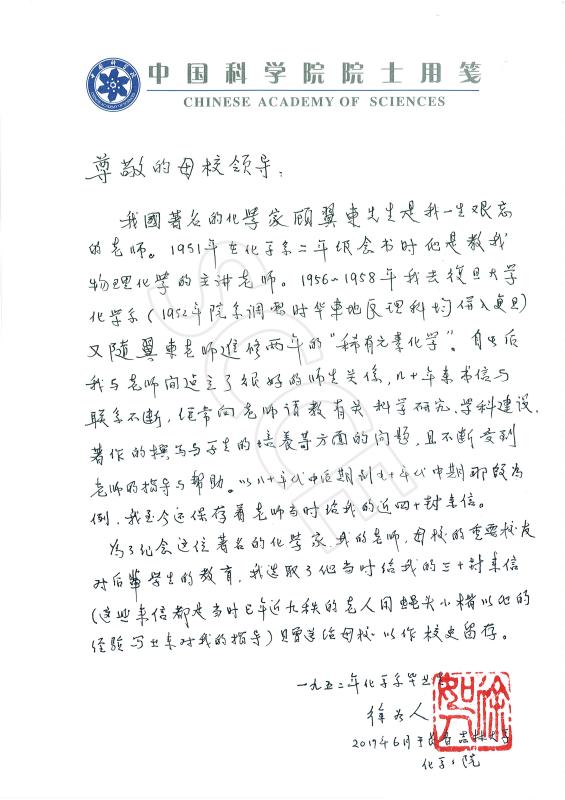 中国科学院院士用笺
CHINESE ACADEMY OF SCIENCES
尊敬的母校领导：
我國著名的化學家顾翼東先生是我一生难忘
的老师。1951年在化学系二年级念书时他是教我
物理化學的主讲老师。1956~1958年我去復旦大学
化学系（1952年院系调整时华東地区理科均併入复旦）
又随翼東老师進修两年的“稀有元素化学”。自此后
我与老师间建立了很好的师生关係，几十年来书信与
联系不断，经常向老师请教有关科学研究、学科建设、
著作的撰写与学生的培养等方面的问题，且不断受到
老师的指导与帮助。以八十年代中后期到九十年代中期那段为
例，我至今还保存着老师当时给我的近四十封来信。
为了纪念这位著名的化学家、我的老师，母校的重要校友
对后辈學生的教育，我选取了他当时给我的三十封来信
（这些来信都是当时已年近九秩的老人用蝇头小楷以他的
经验写出来对我的指导）赠送给母校以作校史留存。
一九五二年化学系毕业生
徐如人
2017年6月于长春吉林大学
化学学院
徐如人
SCCE